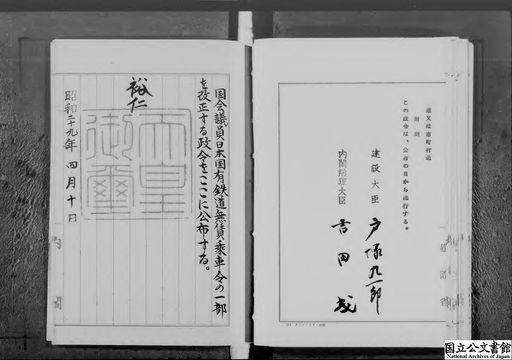 道又は市町村道
附則
この政令は、公布の日から施行する。
建設大臣 戸塚九一郎
内閣総理大臣 吉田茂
国会議員日本国有鉄道無賃乗車令の一部
を改正する政令をここに公布する。
裕仁
天皇
御璽
昭和二十九年四月十日
国立公文書館
National Archives of Japan